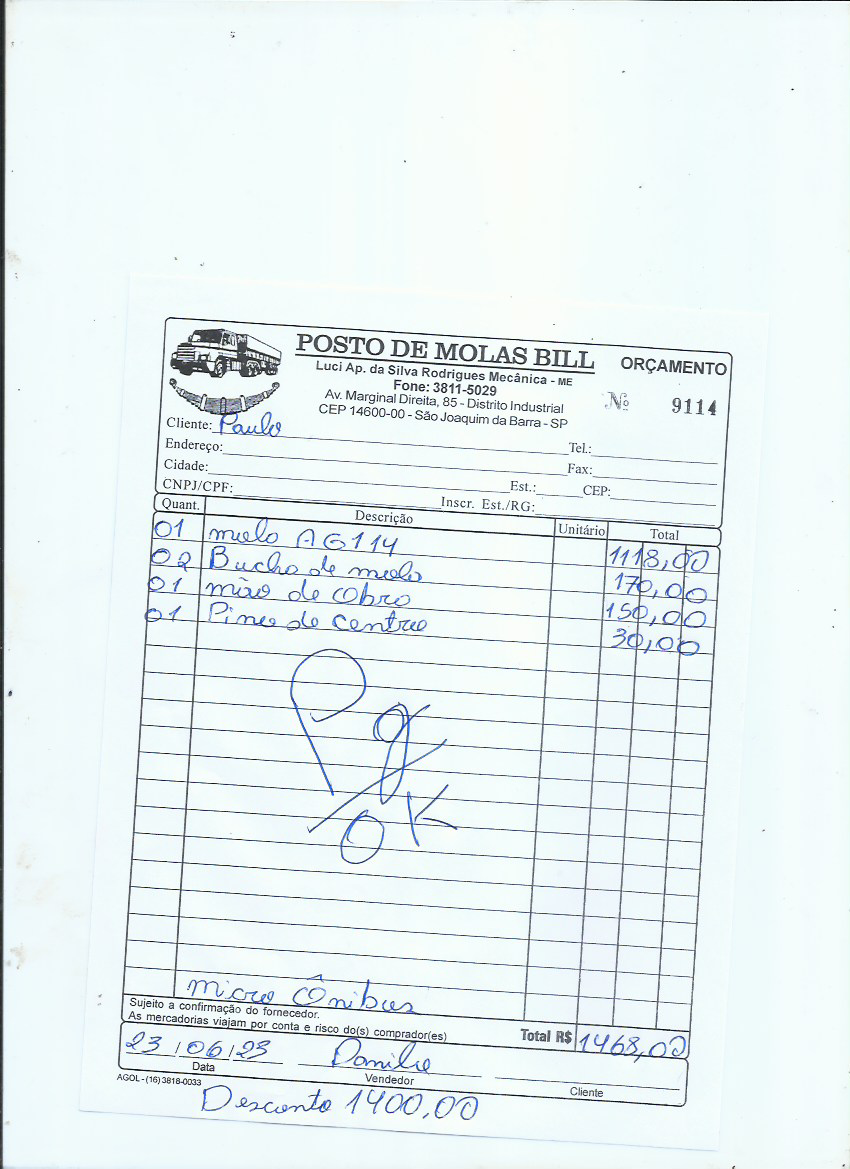 POSTO DE MOLAS BILL
ORÇAMENTO
Luci Ap. da Silva Rodrigues Mecânica - ME
Fone: 3811-5029
Av. Marginal Direita, 85 - Distrito Industrial
CEP 14600-00 - São Joaquim da Barra - SP
Nº 9114
Cliente: Paulo
Tel.:
Endereço:
Fax:
Cidade: Est.: CEP:
CNPJ/CPF: Inscr. Est./RG:
Quant. Descrição Unitário Total
01 mola AG114 1118,00
02 Bucha de mola 170,00
01 mão de Obra 150,00
01 Pino de centro 30,00
Pg
OK
Micro Ônibus
Sujeito a confirmação do fornecedor.
As mercadorias viajam por conta e risco do(s) comprador(es)
Total R$ 1468,00
23 / 06 / 23 Danilo
Data Vendedor Cliente
AGOL - (16) 3818-0033
Desconto 1400,00